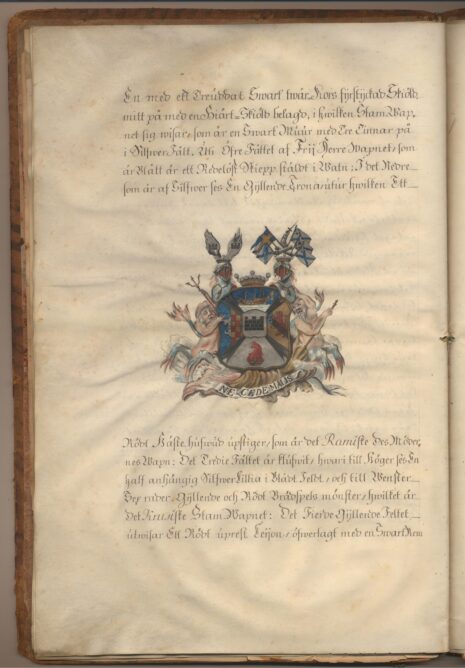 En med ett Treuddat Swart twär Kors fyrstyckad Skiöld
mitt på med en Hiärt Skiöld belagd, i hwilken Stam Wap-
net sig wisar, som är en Swart Muur med Tre Tinnar på
i Silfwer Fält. Uti Öfre Fältet af Frij Herre Wapnet, som
är Blått är ett Redelöst Skiepp stäldt i Watn: I det Nedre
som är af Silfwer ses En Gyllende Crona, utur hwilken Ett
NE CEDE MALIS
Rödt Häste hufwud upstiger, som är det Ramiste des Möder-
nes Wapn: Det Tredie Fältet är klufwit, hwari till Höger ses En
half anhängig Silfwer Lillia i Blådt Feldt, och till Wenster
Sex rader, Gyllende och Rödt Brädspels mönster, hwilket är
Det Krusiste Stam Wapnet: Det Fierde Gyllende Feltet
utwisar Ett Rödt uprest Leijon, öfwerlagt med en Swart Rem